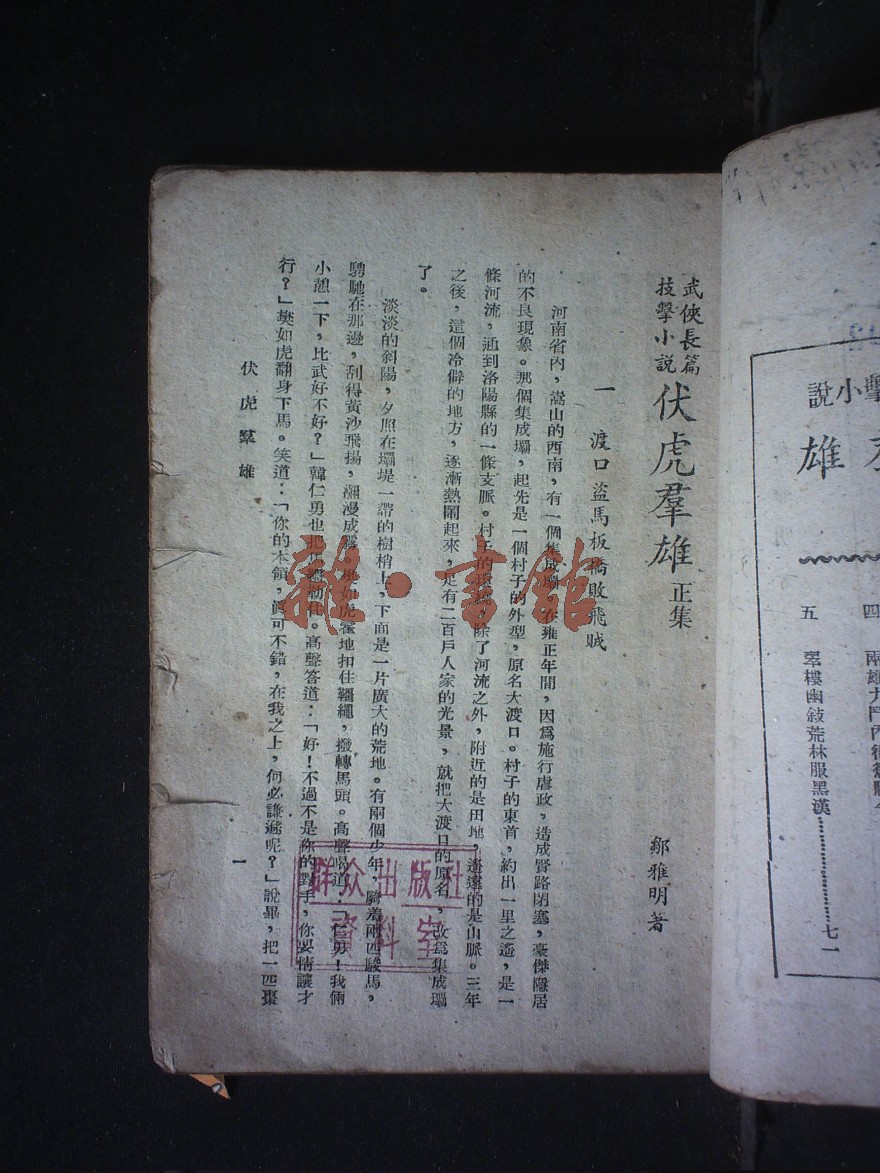 武俠長篇
技擊小說
伏虎羣雄 正集
鄒雅明著
一 渡口盜馬板橋敗飛賊
河南省內，嵩山的西南，有一個集成壩，在雍正年間，因爲施行虐政，造成賢路閉塞，豪傑隱居
的不良現象。那個集成壩，起先是一個村子的外型，原名大渡口。村子的東首，約出一里之遙，是一
條河流，通到洛陽縣的一條支脈。村子的環境，除了河流之外，附近的是田地，遙遠的是山脈。三年
之後，這個冷僻的地方，逐漸熱鬧起來，足有二百戶人家的光景，就把大渡口的原名，改爲集成壩
了。
淡淡的斜陽，夕照在壩堤一帶的樹梢上，下面是一片廣大的荒地。有兩個少年，騎着兩匹駿馬，
騁馳在那邊，刮得黃沙飛揚，瀰漫成霧，樊如虎驀地扣住韁繩，撥轉馬頭。高聲喝道：「仁勇！我倆
小憩一下，比武好不好？」韓仁勇也把馬韁勒住。高聲答道：「好！不過不是你的對手，你要情讓才
行？」樊如虎翻身下馬。笑道：「你的本領，眞可不錯，在我之上，何必謙遜呢？」說畢，把一匹棗
伏虎羣雄
一
雜·書館
群众出版社
資料室
擊小說
雄
四
五 翠樓幽敍荒林服黑漢…………七一